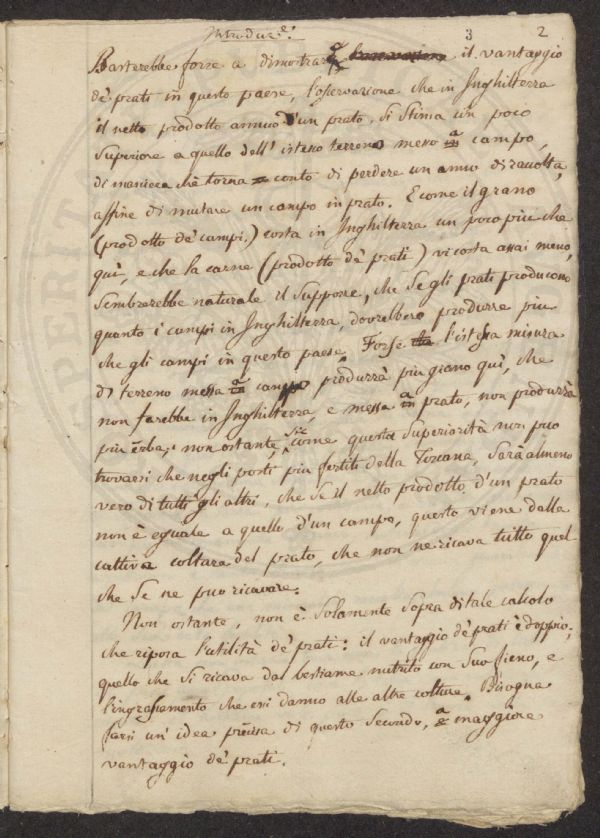 Introduz.e:
3 2
Basterebbe forse a dimostrare il vantaggio
de' prati in questo paese, l'osservazione che in Inghilterra
il netto prodotto annuo d'un prato, si stima un poco
superiore a quello dell' istesso terreno messo a campo,
di maniera che torna conto di perdere un anno di raccolta,
affine di mutare un campo in prato. E come il grano
(prodotto de' campi,) costa in Inghilterra un poco più che
quì, e che la carne (prodotto de' prati) vi costa assai meno,
sembrerebbe naturale il suppone, che se gli prati producono
quanto i campi in Inghilterra, dovrebbero produrre più
che gli campi in questo paese. Forse l'istessa misura
di terreno messa a campo produrrà più grano quì, che
non farebbe in Inghilterra, e messa a prato, non produrrà
più erba; non ostante, siccome questa superiorità non può
trovarsi che negli posti più fertili della Toscana, sarà almeno
vero di tutti gli altri, che se il netto prodotto d'un prato
non è eguale a quello d'un campo, questo viene dalla
cattiva coltura del prato, che non ne ricava tutto quel
che se ne può ricavare.
Non ostante, non è solamente sopra di tale calcolo
che riposa l'utilità de' prati: il vantaggio de' prati è doppio;
quello che si ricava da bestiame nutrito con suo fieno, e
l'ingrassamento che essi danno alle altre colture. Bisogna
farsi un' idea precisa di questo secondo, e maggiore
vantaggio de' prati.